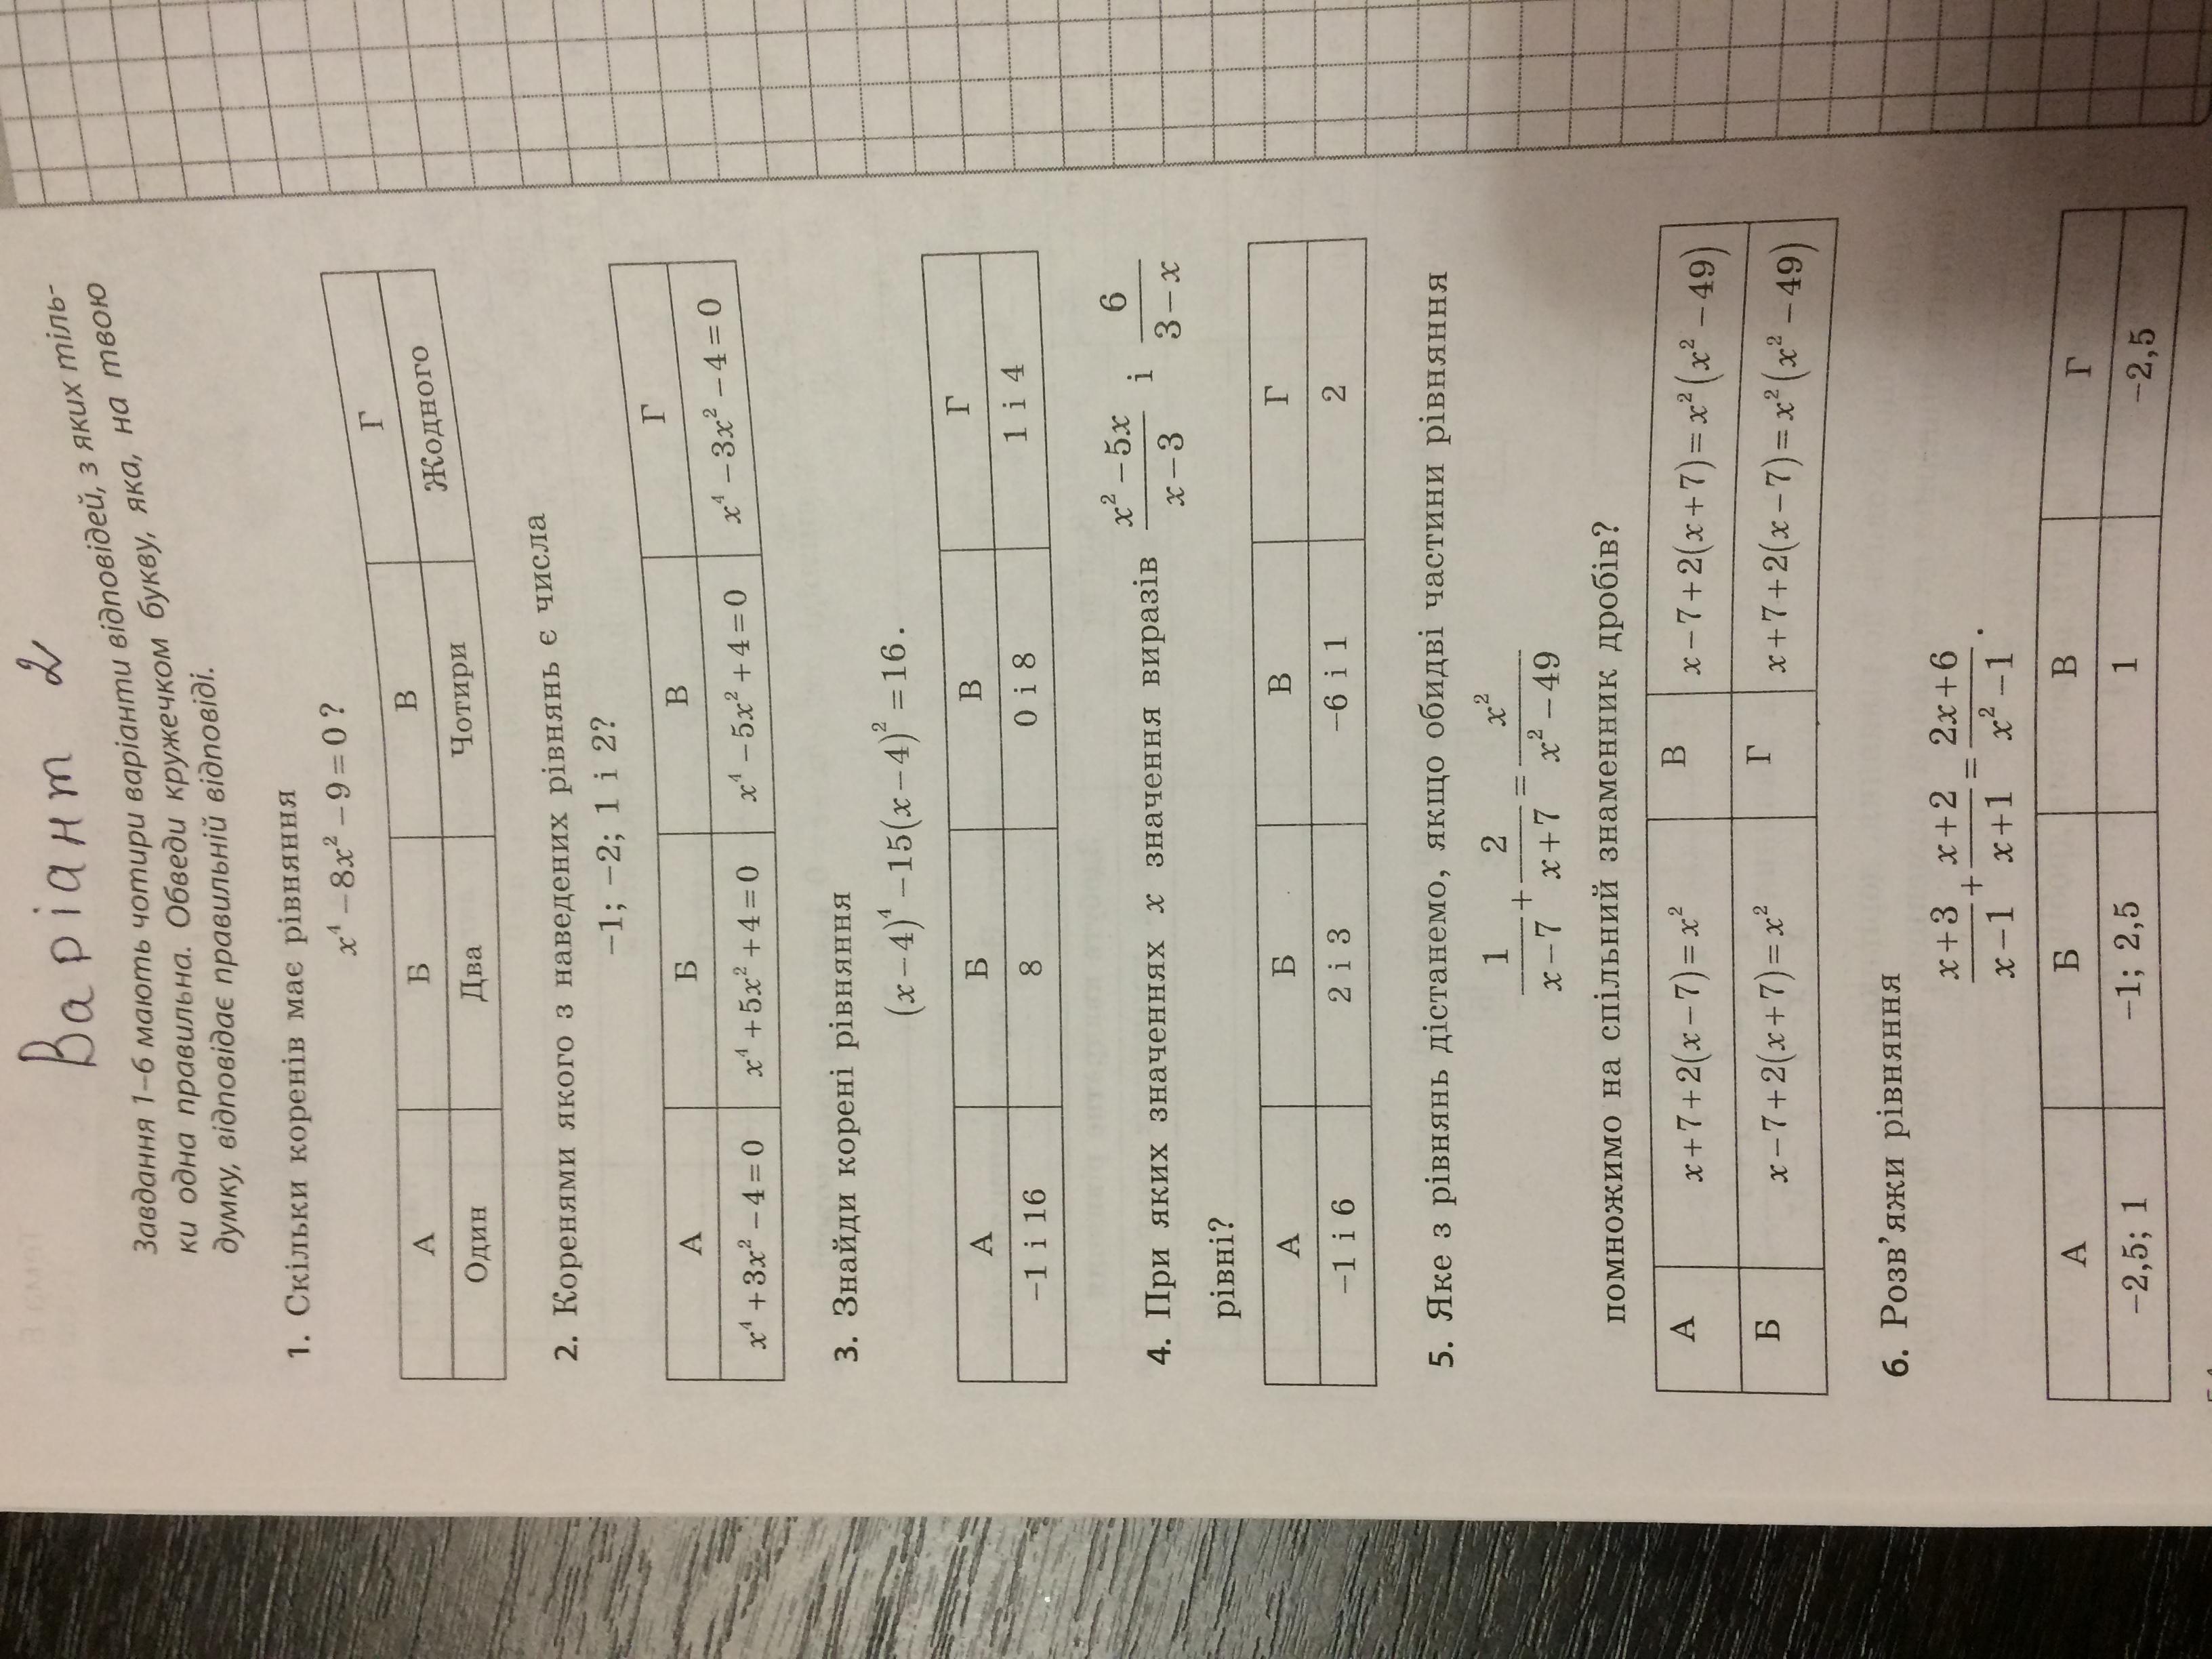 Варіант 2
Завдання 1–6 мають чотири варіанти відповідей, з яких тіль-
ки одна правильна. Обведи кружечком букву, яка, на твою
думку, відповідає правильній відповіді.
1. Скільки коренів має рівняння
x⁴ − 8x² − 9 = 0?
А Б В Г
Один Два Чотири Жодного
2. Коренями якого з наведених рівнянь є числа
−1; −2; 1 і 2?
А Б В Г
x⁴ + 3x² − 4 = 0 x⁴ + 5x² + 4 = 0 x⁴ − 5x² + 4 = 0 x⁴ − 3x² − 4 = 0
3. Знайди корені рівняння
(x − 4)⁴ − 15(x − 4)² = 16.
А Б В Г
−1 і 16 8 0 і 8 1 і 4
4. При яких значеннях x значення виразів (x² − 5x)/(x − 3) і 6/(3 − x)
рівні?
А Б В Г
−1 і 6 2 і 3 −6 і 1 2
5. Яке з рівнянь дістанемо, якщо обидві частини рівняння
1/(x − 7) + 2/(x + 7) = x²/(x² − 49)
помножимо на спільний знаменник дробів?
А x + 7 + 2(x − 7) = x² В x − 7 + 2(x + 7) = x²(x² − 49)
Б x − 7 + 2(x + 7) = x² Г x + 7 + 2(x − 7) = x²(x² − 49)
6. Розв'яжи рівняння
(x + 3)/(x − 1) + (x + 2)/(x + 1) = (2x + 6)/(x² − 1).
А Б В Г
−2,5; 1 −1; 2,5 1 −2,5